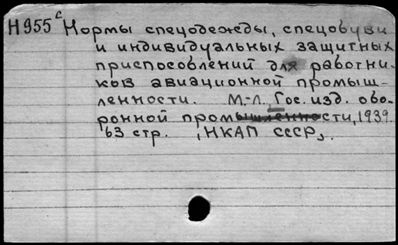 Н955 с Нормы спецодежды, спецобуви
и индивидуальных защитных
приспособлений для работни-
ков авиационной промыш-
ленности. М.-Л., Гос. изд. обо-
ронной промышленности, 1939
63 стр. (НКАП СССР).